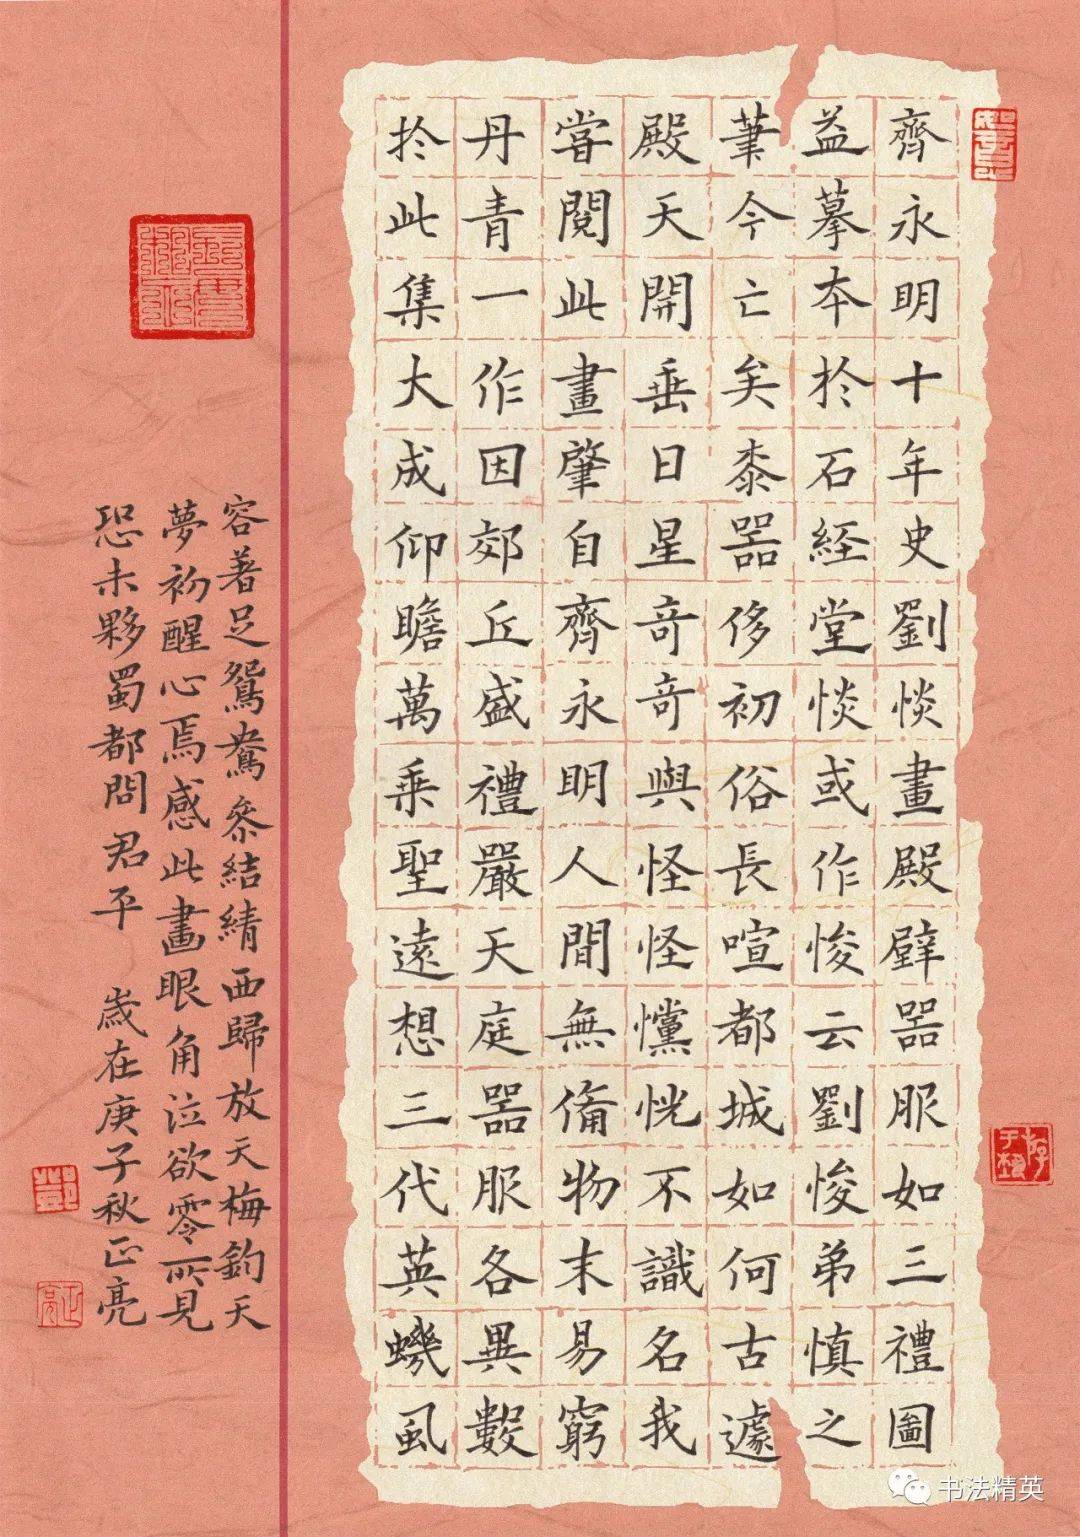 齊永明十年史劉惔畫殿壁器服如三禮圖
益摹本於石經堂惔或作悛云劉悛弟慎之
筆今亡矣黍器侈初俗長喧都城如何古遽
殿天開垂日星奇奇與怪怪戃恍不識名我
嘗閱此畫肇自齊永明人間無備物末易窮
丹青一作因郊丘盛禮嚴天庭器服各異數
於此集大成仰瞻萬乘聖遠想三代英蟣虱
容著足鴛鴦參結綪西歸放天梅鈞天
夢初醒心焉感此畫眼角泣欲零所見
恐未夥蜀都問君平 歲在庚子秋正亮
书法精英